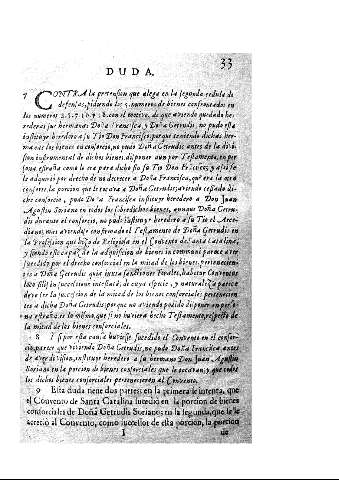 33
DUDA.
7 CONTRA la pretension que alega en la segunda cedula de
defensas, pidiendo los 5. numeros de bienes confrontados en
los numeros 2. 5. 7. 10. y 18. con el motivo, de que aviendo quedado he-
rederas sus hermanas Doña Francisca y Doña Getrudis, no pudo esta
instituir heredero a su Tio Don Francisco, porque teniendo dichas her-
manas los bienes en consorcio, no pudo Doña Getrudis antes de la divi-
sion instrumental de dichos bienes, disponer aun por Testamento, en per-
sona estraña como lo era para dicho fin su Tio Don Francisco, y assi se
le adquirió por directo de su derecho a Doña Francisca, que era la otra
consorte, la porcion que le tocava a Doña Getrudis; aviendo cessado di-
cho consorcio, pudo Doña Francisca instituir heredero a Don Juan
Agustin Soriano en todos los sobredichos bienes, aunque Doña Getru-
dis durante el consorcio, no pudo instituir heredero a su Tio el Arce-
diano, mas aviendo confirmado el Testamento de Doña Getrudis en
la Profession que hizo de Religiosa en el Convento de Santa Catalina,
y siendo este capaz de la adquisicion de bienes in communi parece aver
sucedido por el derecho consorcial en la mitad de los bienes, pertenecien-
te a Doña Getrudis quia iuxta sanctiones Forales, habetur Conventus
loco filij in successione intestati, de cuya especie, y naturaleza parece
deve ser la succession de la mitad de los bienes consorciales, pertenecien-
tes a dicha Doña Getrudis; por que no aviendo podido disponer en perso-
na estraña, es lo mismo, que si no huviera hecho Testamento, respecto de
la mitad de los bienes consorciales.
8 Y si por esta causa huviesse sucedido el Convento en el consor-
cio, parece que viviendo Doña Getrudis, no pudo Doña Francisca, antes
de aver division, instituir heredero a su hermano Don Juan Agustin
Soriano en la porcion de bienes consorciales que le tocavan, y que todos
los dichos bienes consorciales pertenecerian al Convento.
9 Esta duda tiene dos partes; en la primera se intenta, que
el Convento de Santa Catalina sucedió en la porcion de bienes
consorciales de Doña Getrudis Soriano; en la segunda, que le
acreció al Convento, como successor de esta porcion, la porcion
I de